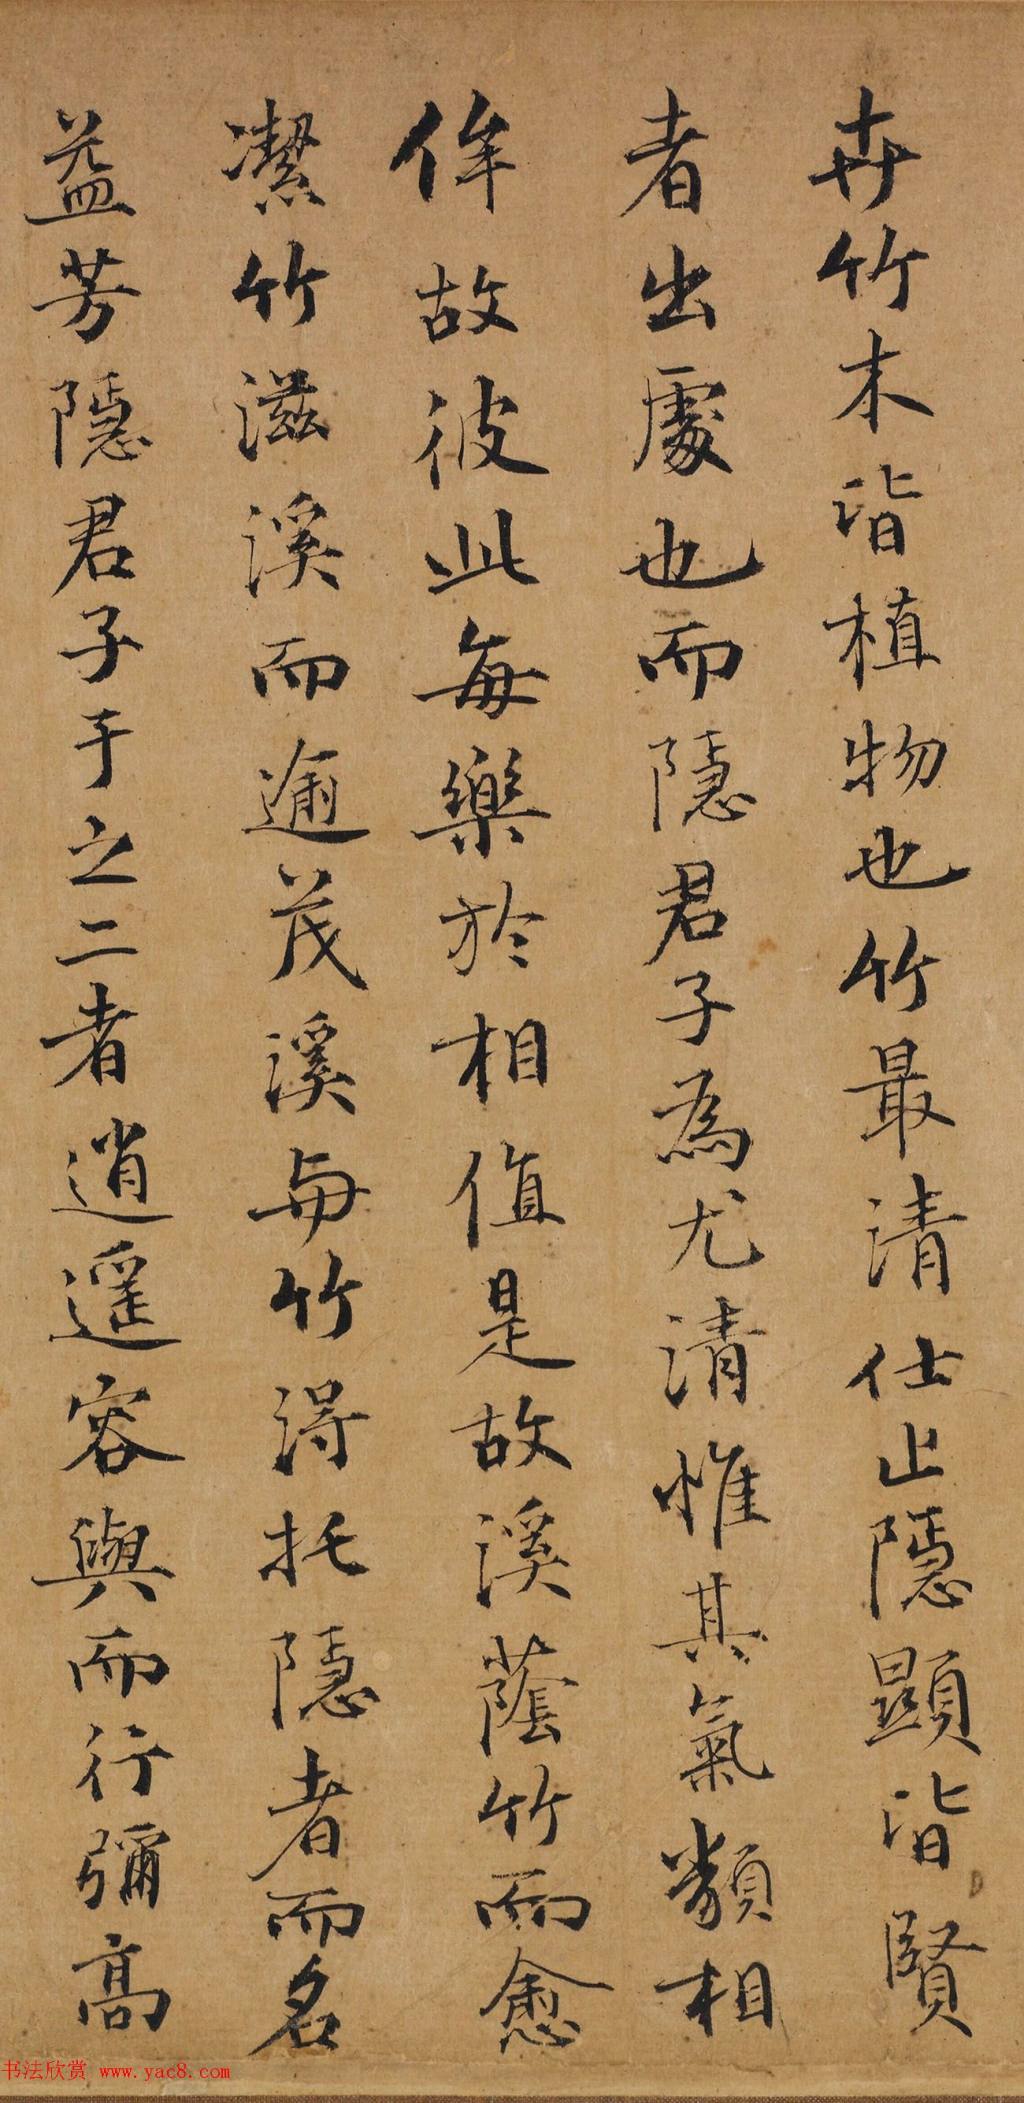 卉竹木皆植物也竹最清仕止隱顯皆賢
者出處也而隱君子為尤清惟其氣類相
侔故彼此每樂於相值是故溪蔭竹而愈
潔竹滋溪而逾茂溪與竹得托隱者而名
益芳隱君子于之二者逍遥容與而行彌高
书法欣赏 www.yac8.com